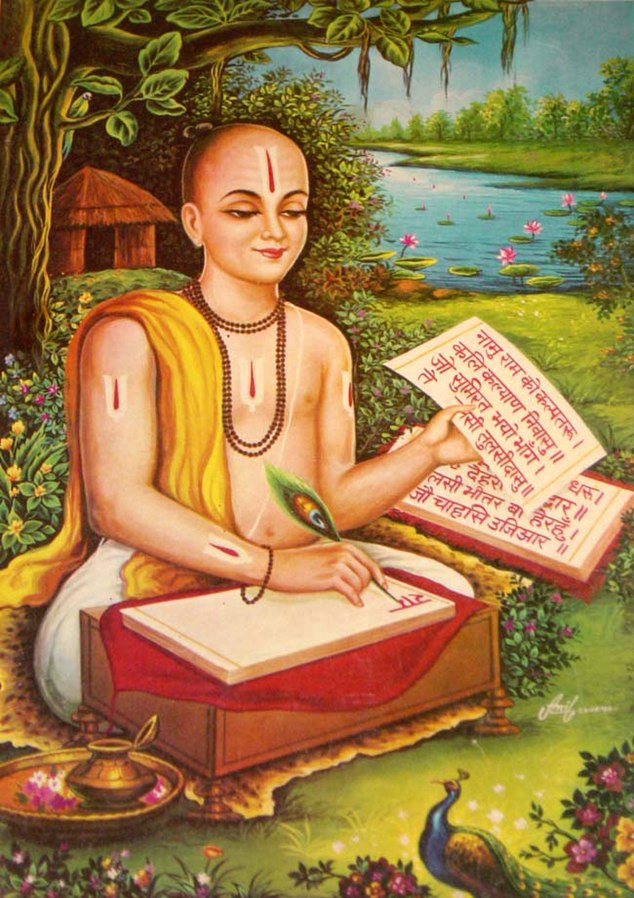 नामु राम को कल्पतरू।
कलि कल्याण निवासु॥
जो सुमिरत भयो भाँग।
तें तुलसीदासु॥
धरू।
देहर
लसी भीतर बा हेरहुँ।
जौ चाहसि उजिआर॥